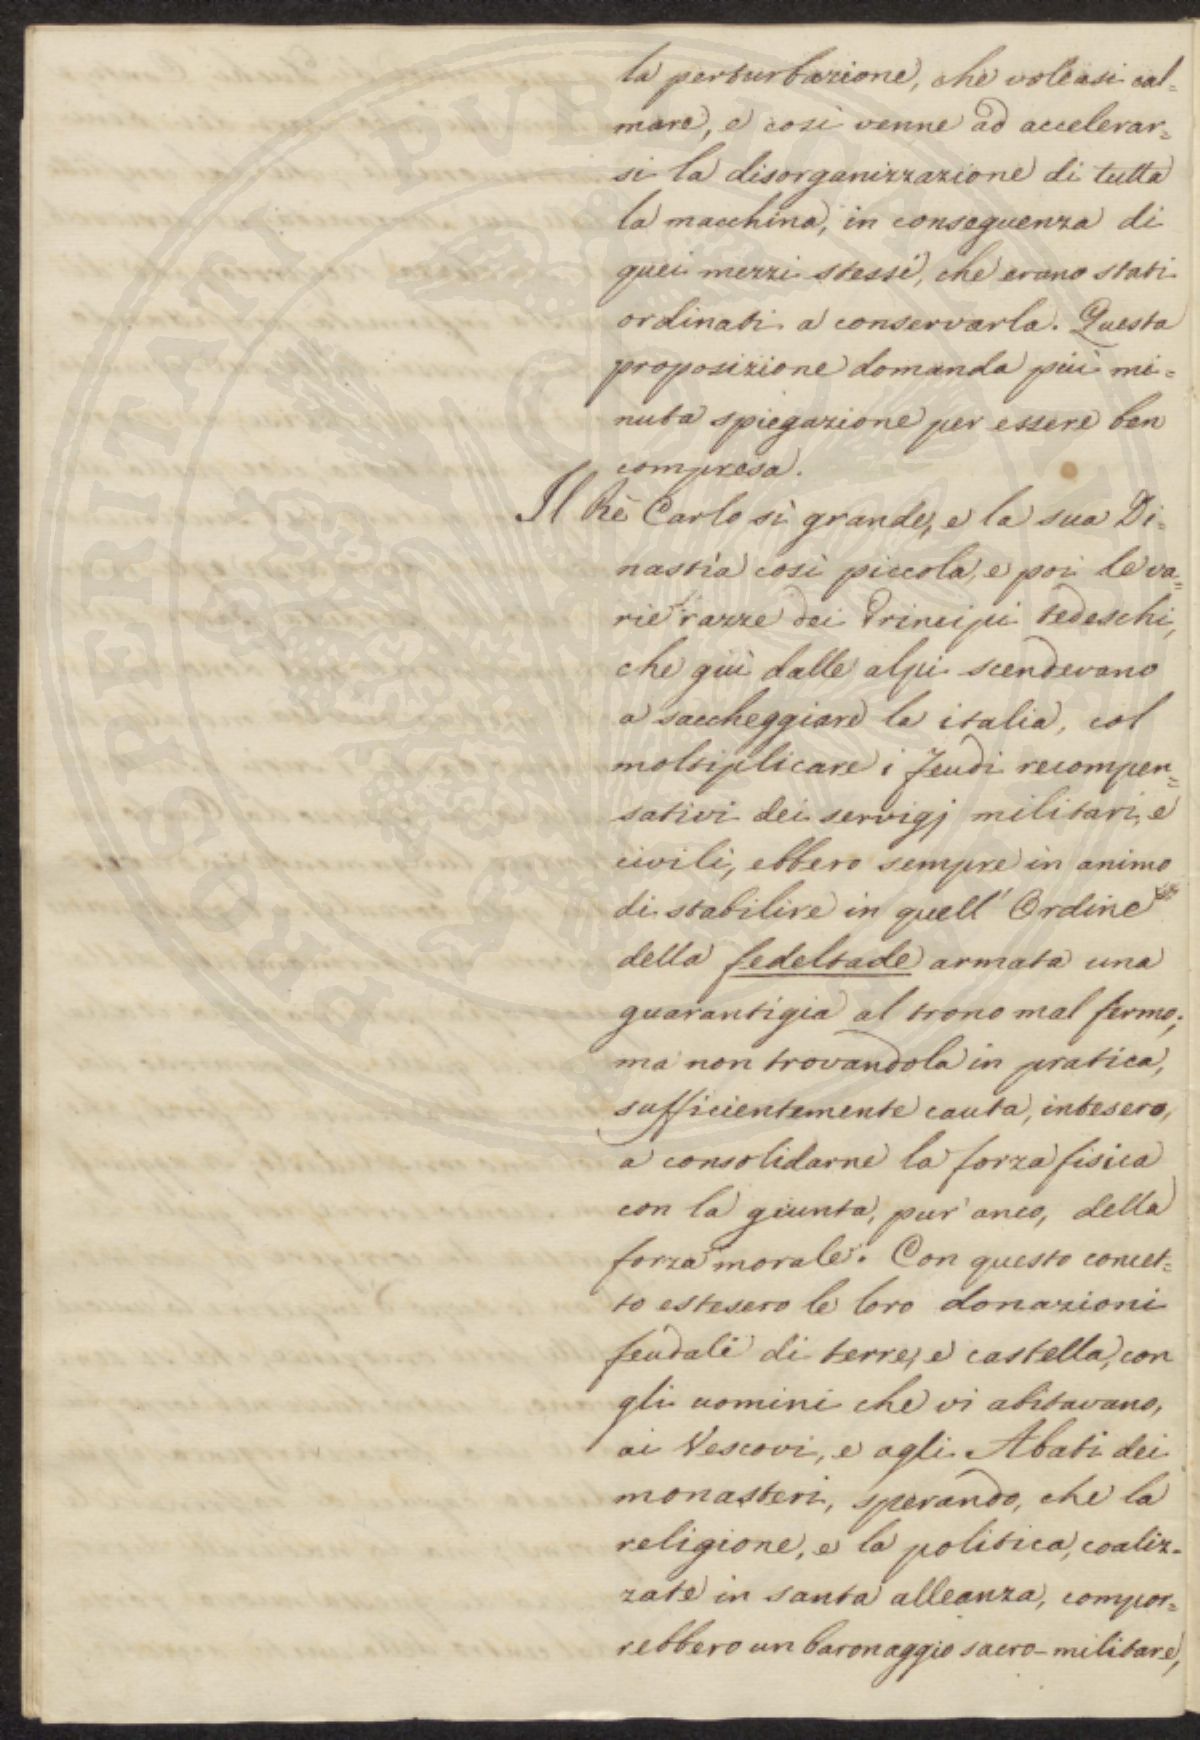 la perturbazione, che voleasi cal=
mare, e così venne ad accelerar=
si la disorganizzazione di tutta
la macchina, in conseguenza di
quei mezzi stessi, che erano stati
ordinati a conservarla. Questa
proposizione domanda più mi=
nuta spiegazione per essere ben
compresa.
Il Rè Carlo sì grande, e la sua Di=
nastìa così piccola, e poi le va=
rie razze dei Principi tedeschi,
che giù dalle alpi scendevano
a saccheggiare la italia, col
moltiplicare i feudi recompen=
sativi dei servigj militari, e
civili, ebbero sempre in animo
di stabilire in quell' Ordine
della fedeltade armata una
guarantigia al trono mal fermo;
ma non trovandola in pratica,
sufficientemente cauta, intesero,
a consolidarne la forza fisica
con la giunta, pur' anco, della
forza morale. Con questo concet=
to estesero le loro donazioni
feudali di terre, e castella, con
gli uomini che vi abitavano,
ai Vescovi, e agli Abati dei
monasteri, sperando, che la
religione, e la politica, coaliz=
zate in santa alleanza, compor=
rebbero un baronaggio sacro-militare,
PROSPERITATI PVBLICAE